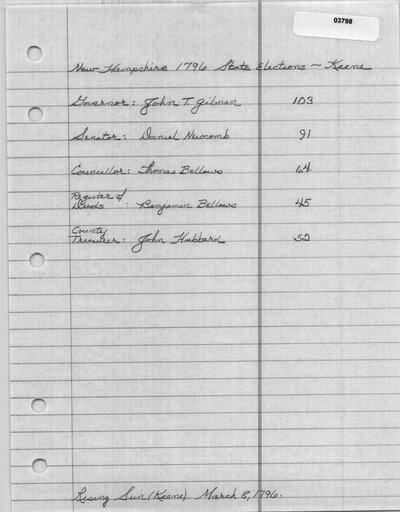 03798
New Hampshire 1796 State Elections ~ Keene
Governor: John T. Gilman 103
Senator: Daniel Newcomb 91
Councillor: Thomas Bellows 64
Register of
Deeds : Benjamin Bellows 45
County
Treasurer: John Hubbard 52
Rising Sun (Keene). March 8, 1796.